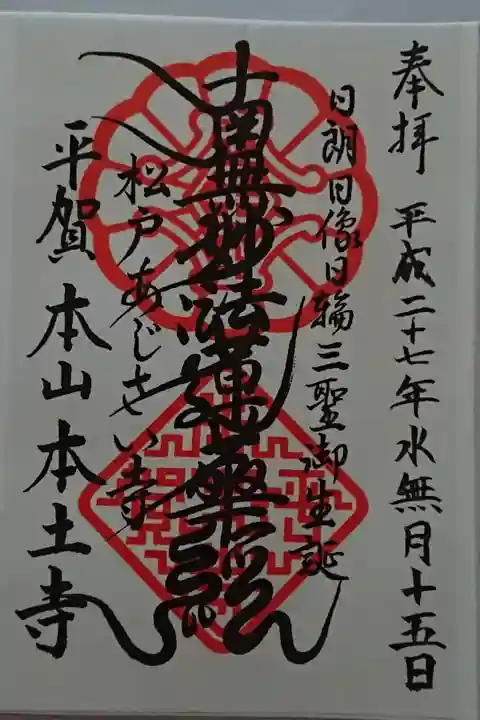 奉拝 平成二十七年水無月十五日
日朗日像日輪三聖御生誕
南無妙法蓮華経
松戸あじさい寺
平賀 本山本土寺